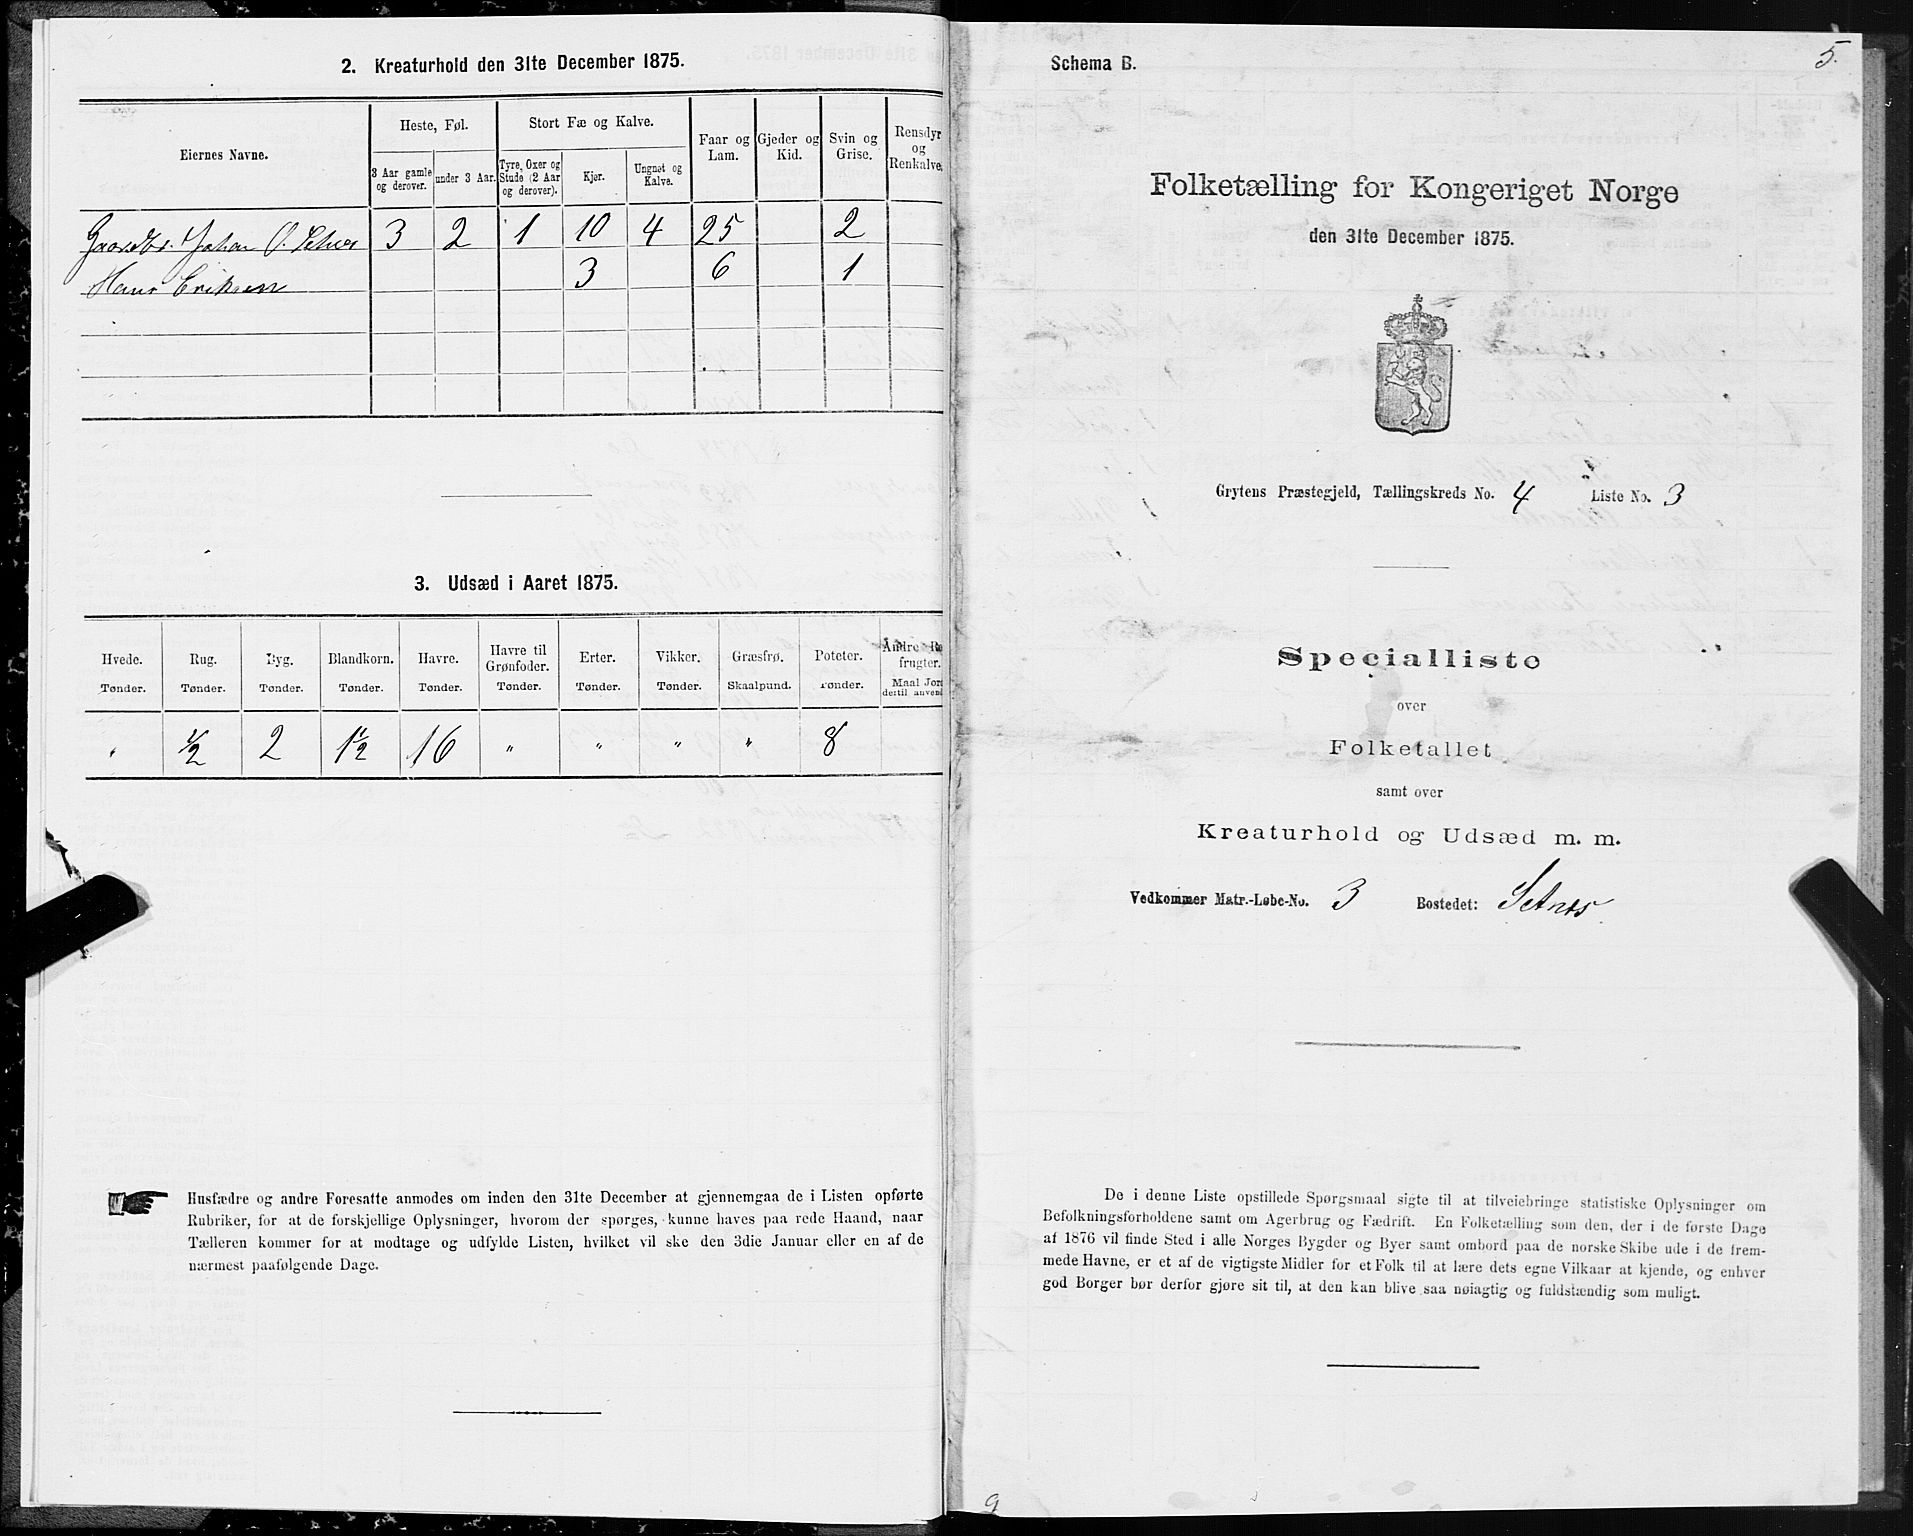 2. Kreaturhold den 31te December 1875.
Eiernes Navne.
Heste, Føl.
Stort Fæ og Kalve.
Faar og Lam.
Gjeder og Kid.
Svin og Grise.
Rensdyr og Renkalve.
3 Aar gamle og derover.
under 3 Aar.
Tyre, Oxer og Stude (2 Aar og derover).
Kjør.
Ungnøt og Kalve.
Gaardbr. Johan O. Setnes 3 2 1 10 4 25 2
Hans Eriksen 3 6 1
3. Udsæd i Aaret 1875.
Hvede. Rug. Byg. Blandkorn. Havre. Havre til Grønfoder. Erter. Vikker. Græsfrø. Poteter. Andre Ro frugter.
Tønder. Tønder. Tønder. Tønder. Tønder. Tønder. Tønder. Tønder. Skaalpund. Tønder. Maal Jord dertil anvend
" 1/2 2 1 1/2 16 " " " " 8
Husfædre og andre Foresatte anmodes om inden den 31te December at gjennemgaa de i Listen opførte
Rubriker, for at de forskjellige Oplysninger, hvorom der spørges, kunne haves paa rede Haand, naar
Tælleren kommer for at modtage og udfylde Listen, hvilket vil ske den 3die Januar eller en af de
nærmest paafølgende Dage.
Schema B.
5.
Folketælling for Kongeriget Norge
den 31te December 1875.
Grytens Præstegjeld, Tællingskreds No. 4 Liste No. 3
Specialliste
over
Folketallet
samt over
Kreaturhold og Udsæd m. m.
Vedkommer Matr.-Løbe-No. 3 Bostedet: Setnes.
De i denne Liste opstillede Spørgsmaal sigte til at tilveiebringe statistiske Oplysninger om
Befolkningsforholdene samt om Agerbrug og Fædrift. En Folketælling som den, der i de første Dage
af 1876 vil finde Sted i alle Norges Bygder og Byer samt ombord paa de norske Skibe ude i de frem-
mede Havne, er et af de vigtigste Midler for et Folk til at lære dets egne Vilkaar at kjende, og enhver
god Borger bør derfor gjøre sit til, at den kan blive saa nøiagtig og fuldstændig som muligt.
9